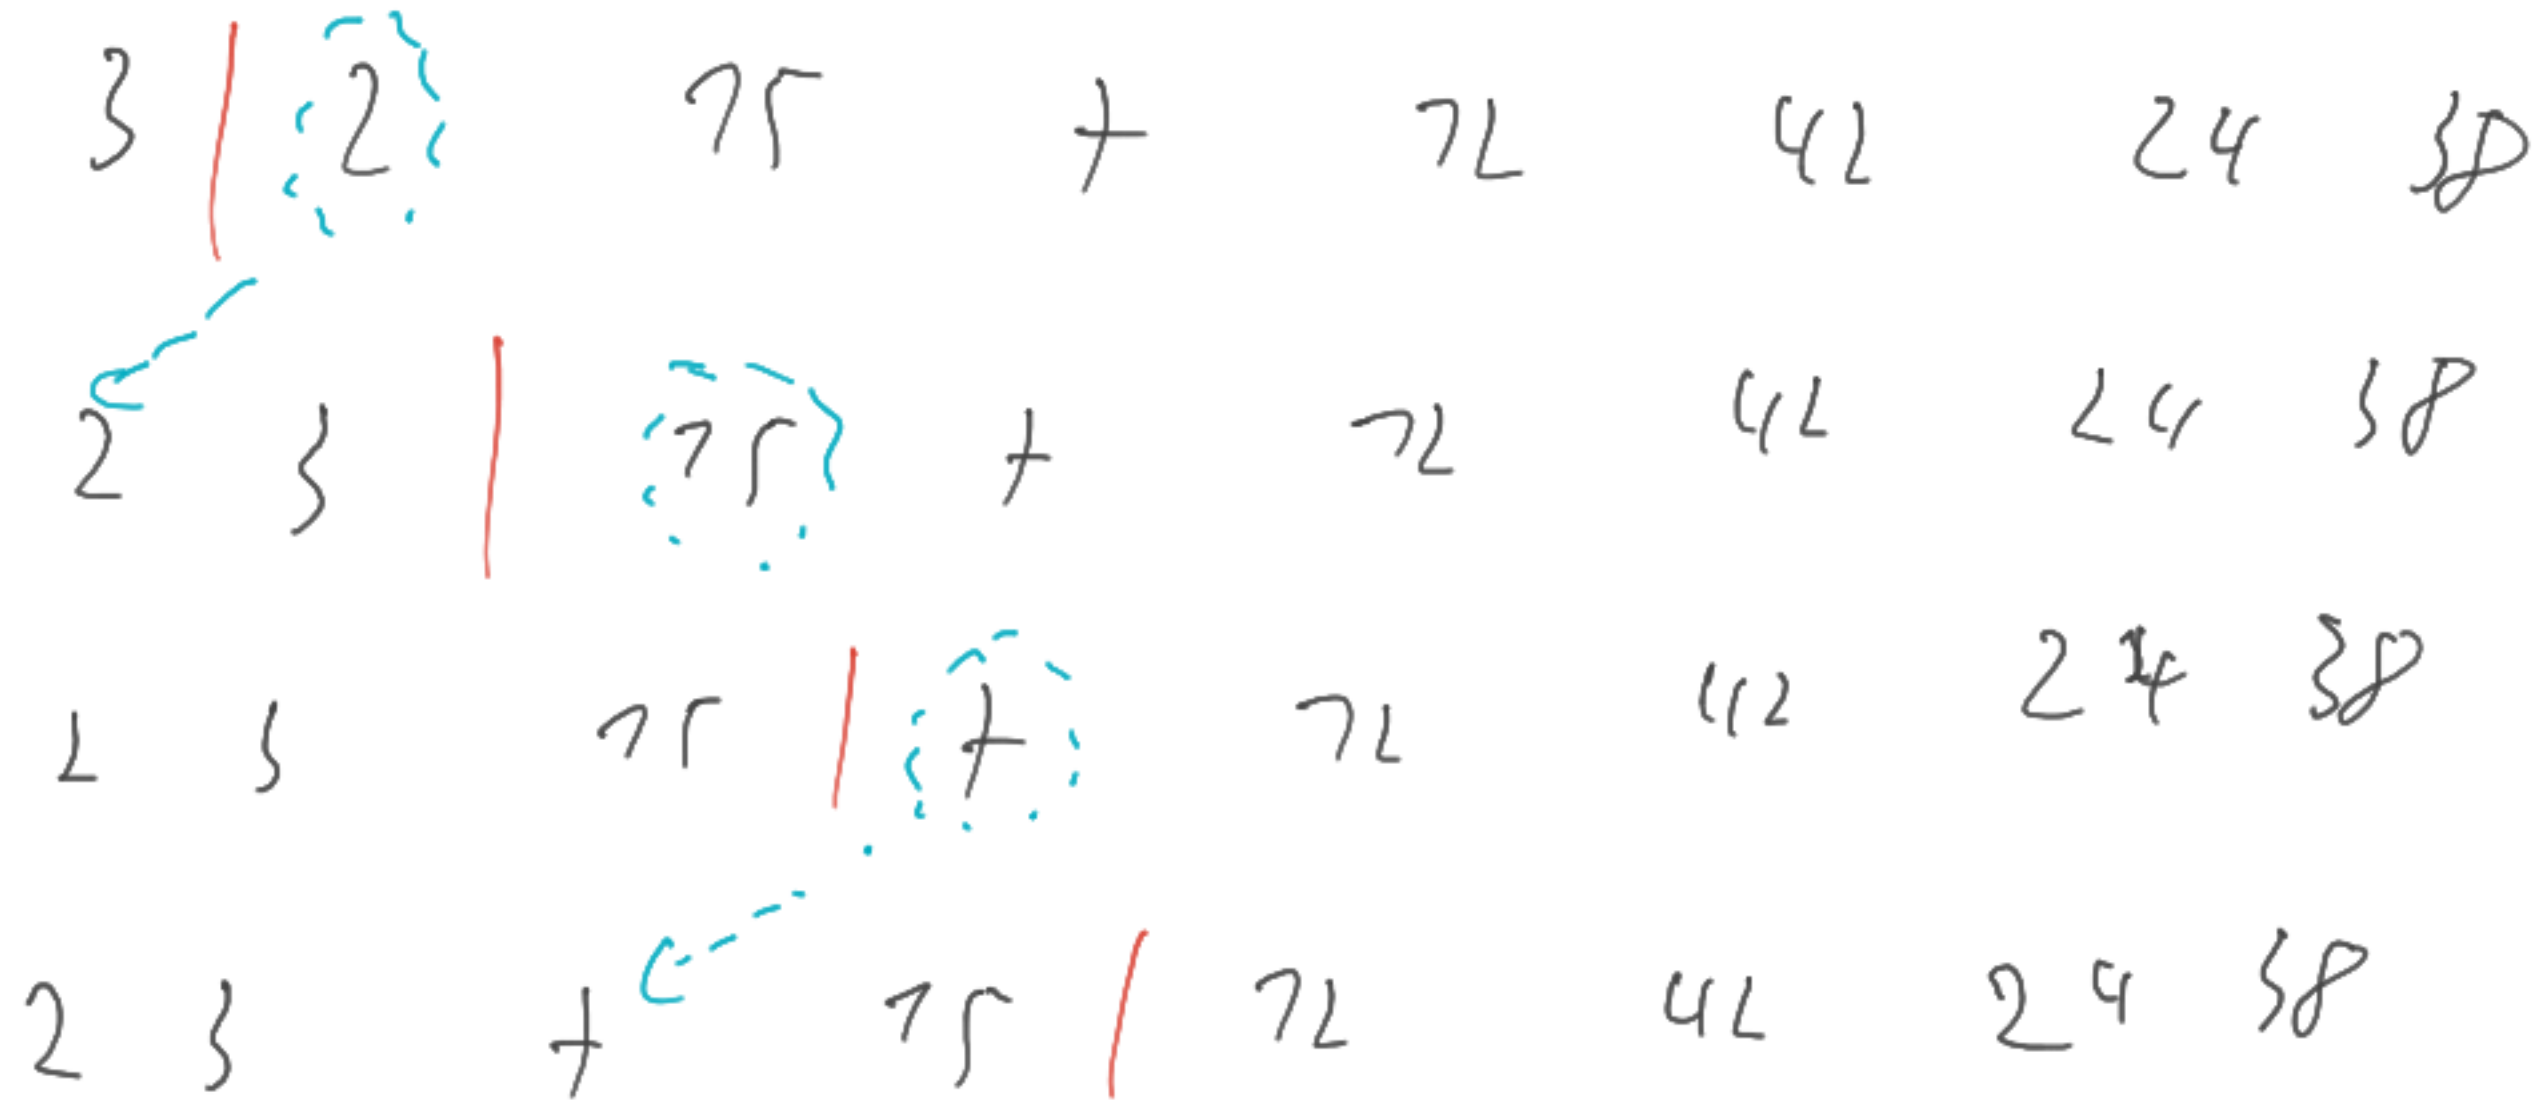 3 | 2 15 7 12 42 24 38
2 3 | 15 7 12 42 24 38
2 3 15 | 7 12 42 24 38
2 3 7 15 | 12 42 24 38